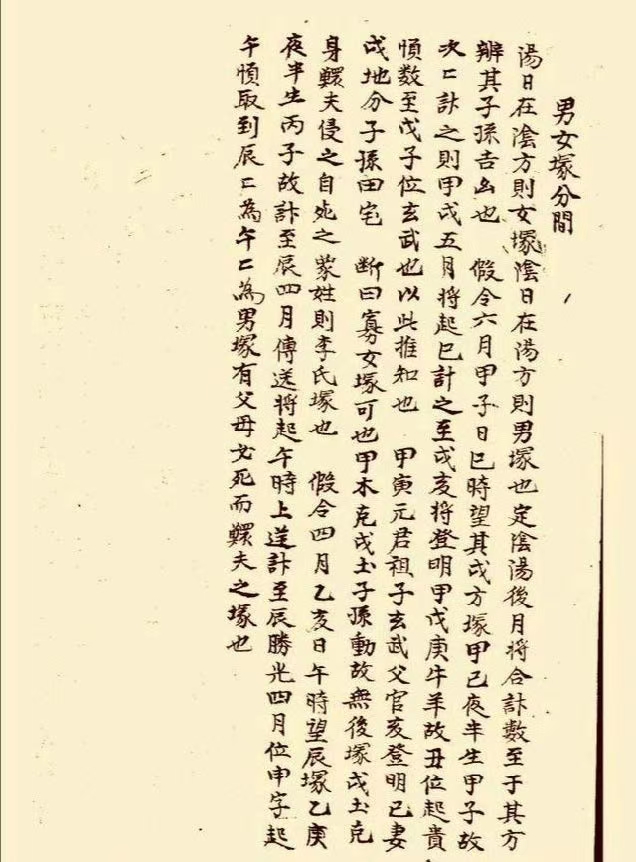 男女塚分間
湯日在陰方則女塚陰日在湯方則男塚也定陰湯後月将合計數至于其方
辨其子孫吉凶也　假令六月甲子日巳時望其戌方塚甲己夜半生甲子故
次〻計之則甲戌五月将起巳計之至戌亥将登明甲戊庚牛羊故丑位起貴
順数至戊子位玄武也以此推知也　甲寅元君祖子玄武父官亥登明已妻
戌地分子孫田宅　断曰寡女塚可也甲木克戌土子孫動故無後塚戌土克
身鰥夫侵之自死之蒙姓則李氏塚也　假令四月乙亥日午時望辰塚乙庚
夜半生丙子故計至辰四月傳送将起午時上送計至辰勝光四月位申字起
午順取到辰〻為午〻為男塚有父母女死而鰥夫之塚也